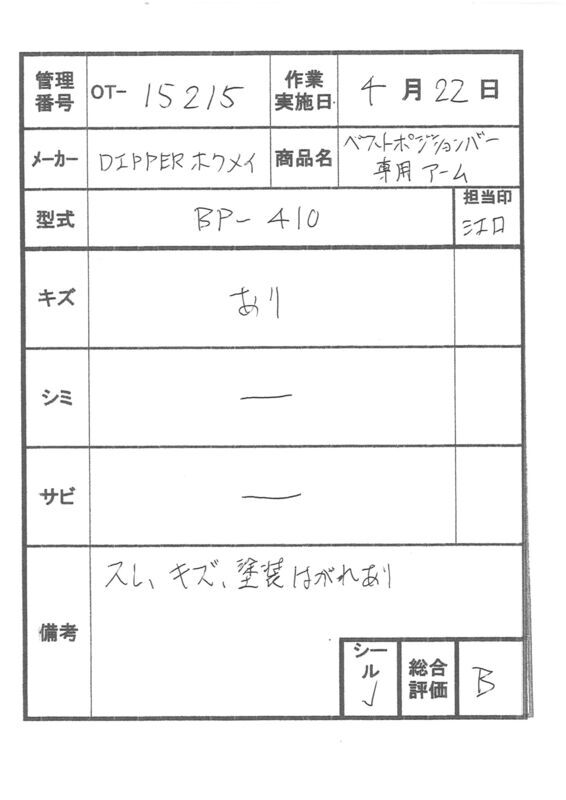 管理番号 OT- 15215 作業実施日 4月22日
メーカー DIPPER ホクメイ 商品名 ベストポジションバー
専用アーム
型式 BP-410 担当印
江口
キズ あり
シミ —
サビ —
備考 スレ、キズ、塗装はがれあり
シール ✓ 総合評価 B